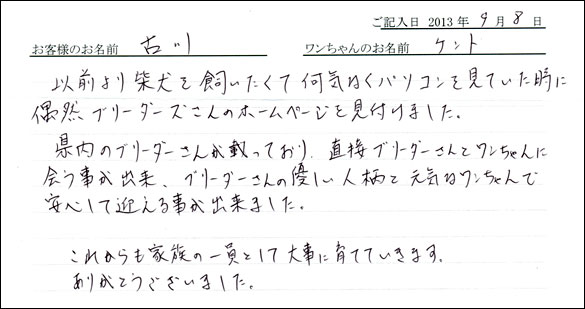 ご記入日 2013 年 9 月 8 日
お客様のお名前 古川 ワンちゃんのお名前 ケント
以前より柴犬を飼いたくて何気なくパソコンを見ていた時に
偶然ブリーダーズさんのホームページを見付けました。
県内のブリーダーさんが載っており、直接ブリーダーさんとワンちゃんに
会う事が出来、ブリーダーさんの優しい人柄と元気なワンちゃんで
安心して迎える事が出来ました。
これからも家族の一員として大事に育てていきます。
ありがとうございました。